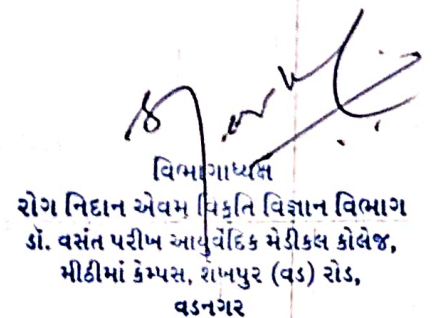 વિભાગાધ્યક્ષ
રોગ નિદાન એવમ વિકૃતિ વિજ્ઞાન વિભાગ
ડૉ. વસંત પરીખ આયુર્વેદિક મેડીકલ કોલેજ,
મીઠીમાં કેમ્પસ, શેખપુર (વડ) રોડ,
વડનગર